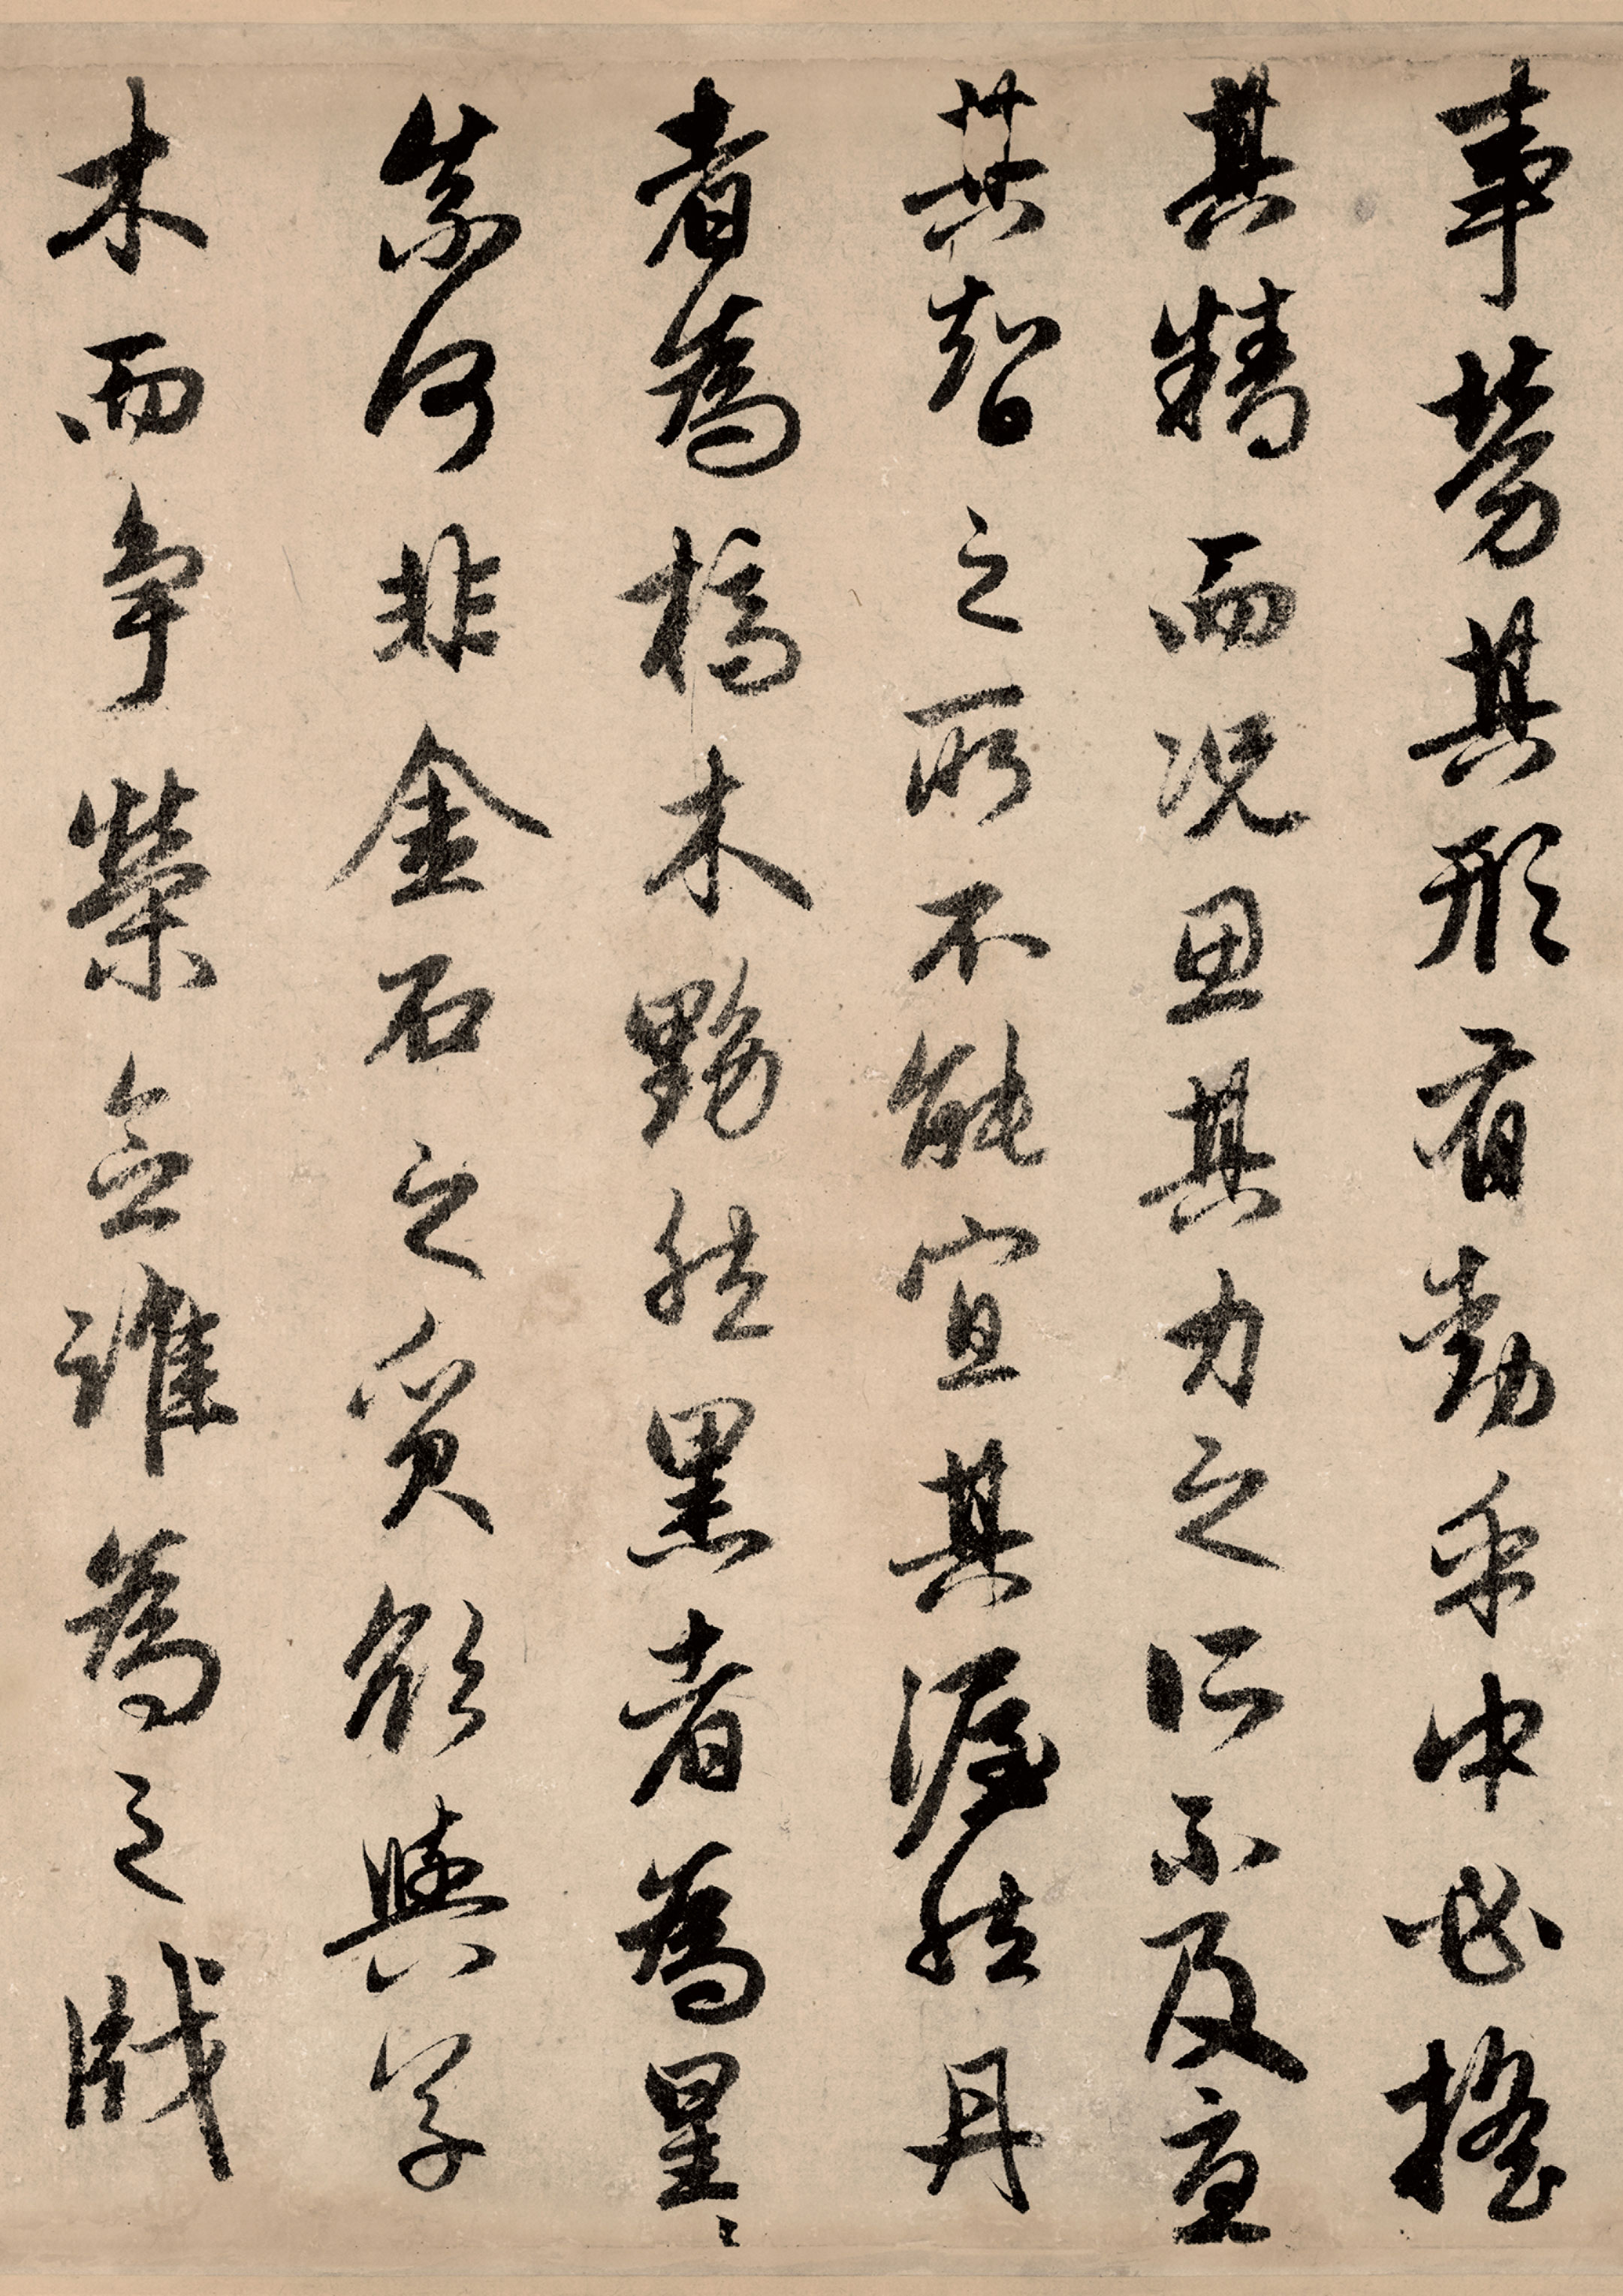 事勞其形有動乎中必搖
其精而况思其力之所不及憂
其智之所不能宜其渥然丹
者為槁木黟然黑者為星〻
奈何非金石之質欲與草
木而爭榮念誰為之戕